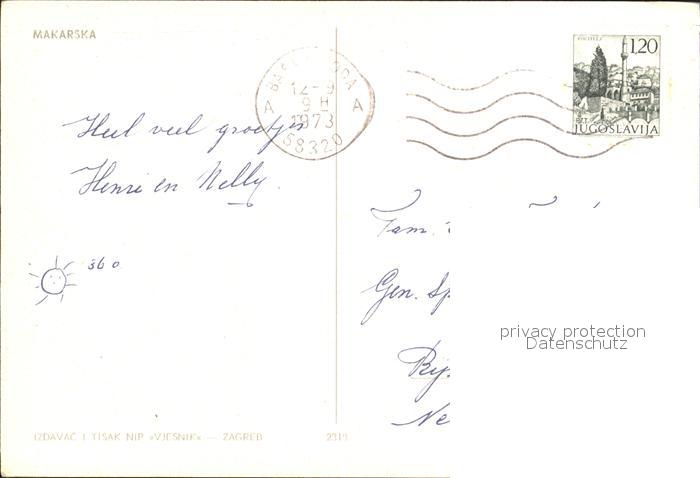 MAKARSKA
12-9
9H
1973
58320
A A
1,20
JUGOSLAVIJA
Heel veel groetjes
Henri en Nelly.
36 o
Fam.
Gen. Sp
Rij
Ne
privacy protection
Datenschutz
IZDAVAČ I TISAK NIP »VJESNIK« — ZAGREB 2313